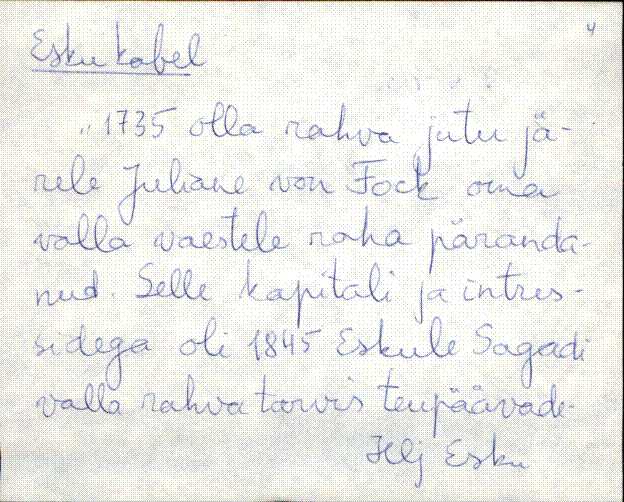 4
Esku kabel
„1735 olla rahva jutu jä-
rele Juliane von Fock oma
valla vaestele raha päranda-
nud. Selle kapitali ja intres-
sidega oli 1845 Eskule Sagadi
valla rahva tarvis teupäävade-
Hlj Esku